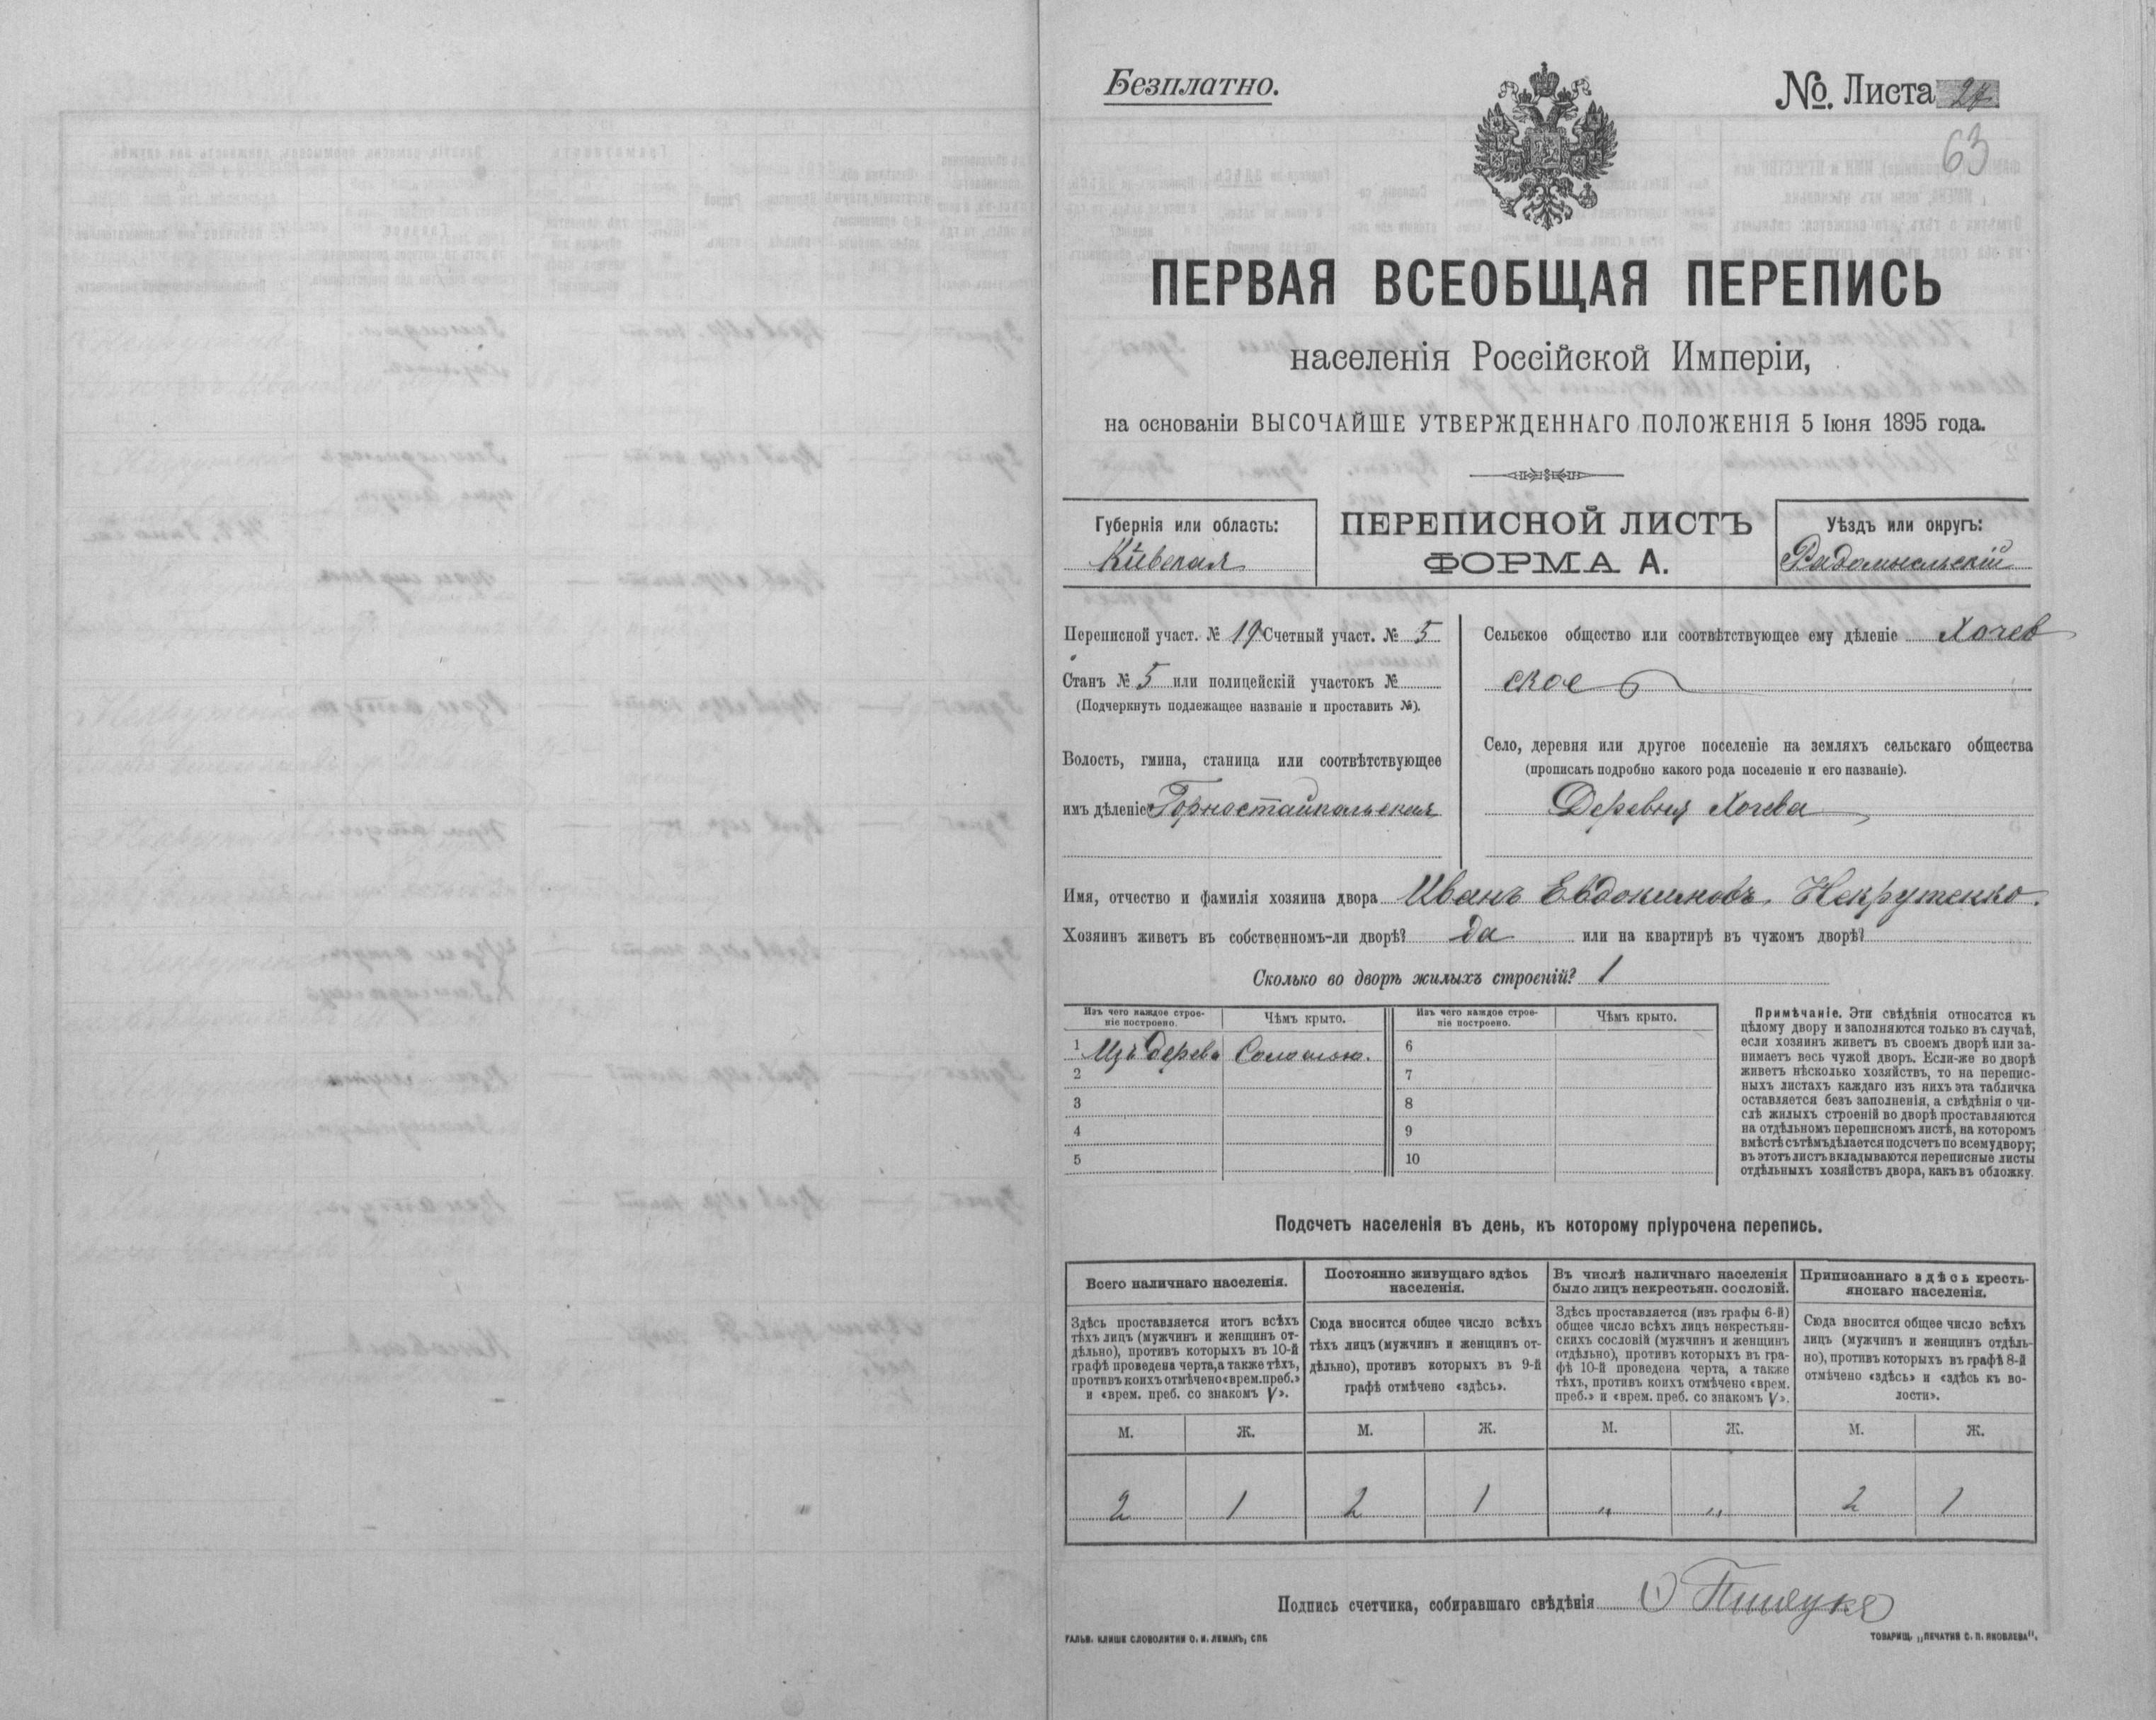 Безплатно.
№. Листа 24
63
ПЕРВАЯ ВСЕОБЩАЯ ПЕРЕПИСЬ
населенія Россійской Имперіи,
на основаніи ВЫСОЧАЙШЕ УТВЕРЖДЕННАГО ПОЛОЖЕНІЯ 5 Іюня 1895 года.
Губернія или область:
Кіевская
ПЕРЕПИСНОЙ ЛИСТЪ
ФОРМА А.
Уѣздъ или округъ:
Радомысльскій
Переписной участ. № 19 Счетный участ. № 5
Станъ № 5 или полицейскій участокъ №
(Подчеркнуть подлежащее названіе и проставить №).
Волость, гмина, станица или соотвѣтствующее
имъ дѣленіе Горностайпольская
Сельское общество или соотвѣтствующее ему дѣленіе Хочев
ское
Село, деревня или другое поселеніе на земляхъ сельскаго общества
(прописать подробно какого рода поселеніе и его названіе).
Деревня Хочева
Имя, отчество и фамилія хозяина двора Иванъ Евдокимовъ Некрутенко.
Хозяинъ живетъ въ собственномъ-ли дворѣ? да или на квартирѣ въ чужомъ дворѣ?
Сколько во дворѣ жилыхъ строеній? 1
Изъ чего каждое строе-
ніе построено.
Чѣмъ крыто.
Изъ чего каждое строе-
ніе построено.
Чѣмъ крыто.
1 Изъ дерева Соломою. 6
2 7
3 8
4 9
5 10
Примѣчаніе. Эти свѣдѣнія относятся къ
цѣлому двору и заполняются только въ случаѣ,
если хозяинъ живетъ въ своемъ дворѣ или за-
нимаетъ весь чужой дворъ. Если-же во дворѣ
живетъ нѣсколько хозяйствъ, то на перепис-
ныхъ листахъ каждаго изъ нихъ эта табличка
оставляется безъ заполненія, а свѣдѣнія о чи-
слѣ жилыхъ строеній во дворѣ проставляются
на отдѣльномъ переписномъ листѣ, на которомъ
вмѣстѣ съ тѣмъ дѣлается подсчетъ по всему двору;
въ этотъ листъ вкладываются переписные листы
отдѣльныхъ хозяйствъ двора, какъ въ обложку.
Подсчетъ населенія въ день, къ которому пріурочена перепись.
Всего наличнаго населенія.
Здѣсь проставляется итогъ всѣхъ
тѣхъ лицъ (мужчинъ и женщинъ от-
дѣльно), противъ которыхъ въ 10-й
графѣ проведена черта, а также тѣхъ,
противъ коихъ отмѣчено «врем. преб.»
и «врем. преб. со знакомъ V».
Постоянно живущаго здѣсь
населенія.
Сюда вносится общее число всѣхъ
тѣхъ лицъ (мужчинъ и женщинъ от-
дѣльно), противъ которыхъ въ 9-й
графѣ отмѣчено «здѣсь».
Въ числѣ наличнаго населенія
было лицъ некрестьян. сословій.
Здѣсь проставляется (изъ графы 6-й)
общее число всѣхъ лицъ некрестьян-
скихъ сословій (мужчинъ и женщинъ
отдѣльно), противъ которыхъ въ гра-
фѣ 10-й проведена черта, а также
тѣхъ, противъ коихъ отмѣчено «врем.
преб.» и «врем. преб. со знакомъ V».
Приписаннаго здѣсь кресть-
янскаго населенія.
Сюда вносится общее число всѣхъ
лицъ (мужчинъ и женщинъ отдѣль-
но), противъ которыхъ въ графѣ 8-й
отмѣчено «здѣсь» и «здѣсь къ во-
лости».
М. Ж. М. Ж. М. Ж. М. Ж.
2 1 2 1 „ „ 2 1
Подпись счетчика, собиравшаго свѣдѣнія
ГАЛЬВ. КЛИШЕ СЛОВОЛИТНИ О. И. ЛЕМАНЪ, СПБ.
ТОВАРИЩ. „ПЕЧАТНЯ С. П. ЯКОВЛЕВА".